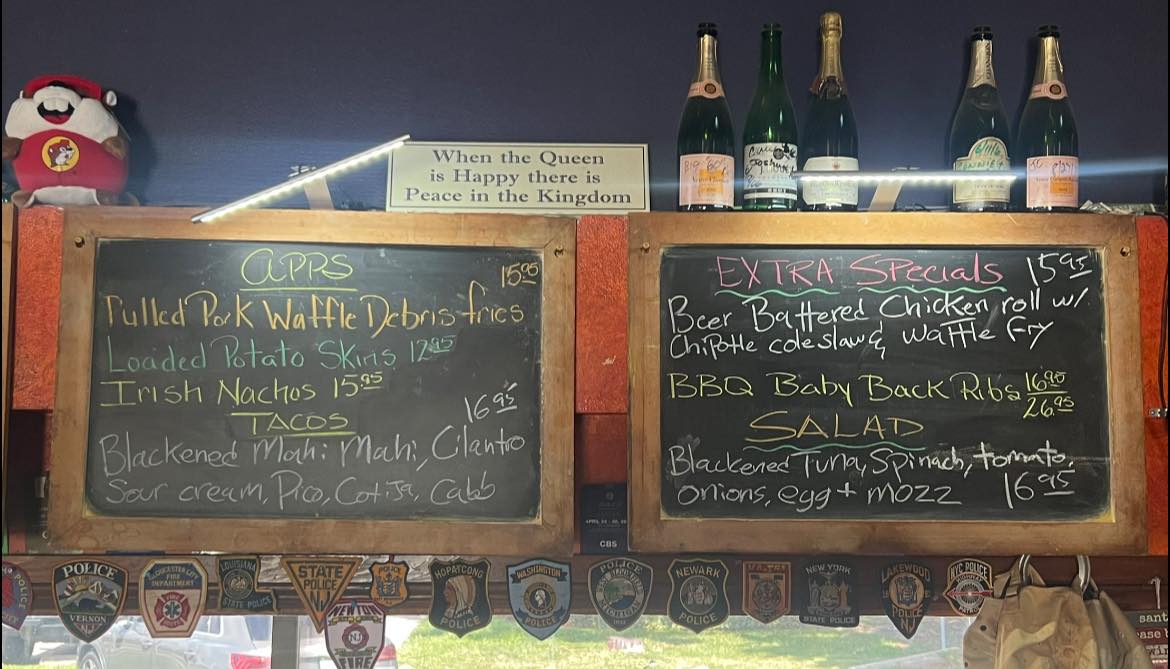 When the Queen
is Happy there is
Peace in the Kingdom
APPS
15.95
Pulled Pork Waffle Debris fries
Loaded Potato Skins 12.95
Irish Nachos 15.95
TACOS
16.95
Blackened Mahi Mahi, Cilantro
Sour cream, Pico, Cotija, Cabb
EXTRA Specials 15.95
Beer Battered Chicken roll w/
Chipotle coleslaw & waffle Fry
BBQ Baby Back Ribs 16.95
26.95
SALAD
Blackened Tuna, Spinach, tomato,
onions, egg + mozz 16.95
CBS
POLICE
VERNON
NJ
GLOUCESTER CITY
FIRE
DEPARTMENT
LOUISIANA
STATE POLICE
STATE
POLICE
NJ
NEWTON
NJ
FIRE
HOPATCONG
POLICE
WASHINGTON
POLICE
POLICE
NEWARK
POLICE
NEW YORK
STATE POLICE
LAKEWOOD
POLICE
NJ
NYC POLICE
HIGHWAY
PATROL